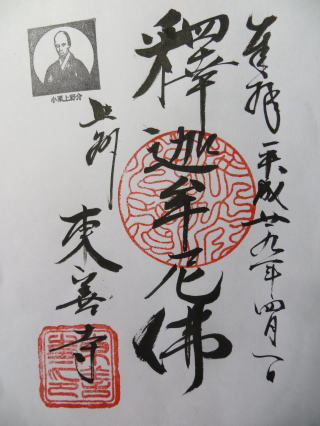 奉拝 平成廿九年四月一日
釋迦牟尼佛
上州
東善寺
小栗上野介